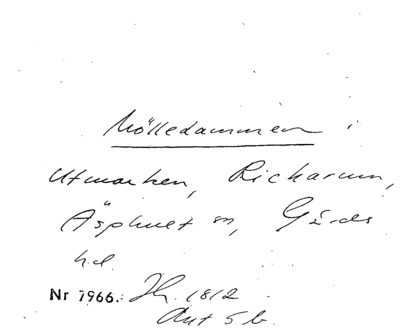 Mölledammen i
Utmarken, Rickarum,
Äsphult sn, Gärds
hd.
Nr 7966. Jh. 1812
Akt 5 b.